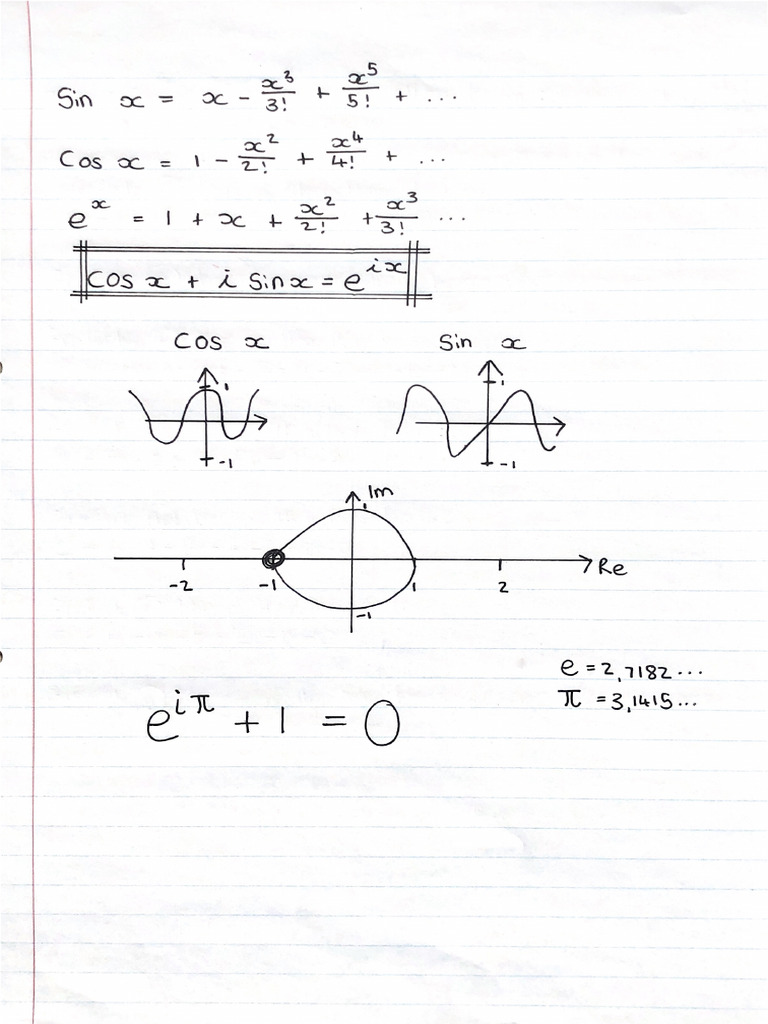 Sin x = x - x³/3! + x⁵/5! + ...
Cos x = 1 - x²/2! + x⁴/4! + ...
eˣ = 1 + x + x²/2! + x³/3! ...
Cos x + i Sin x = e^{ix}
Cos x
Sin x
1
1
-1
-1
Im
1
Re
-2
-1
1
2
-1
e = 2,7182...
π = 3,1415...
e^{iπ} + 1 = 0